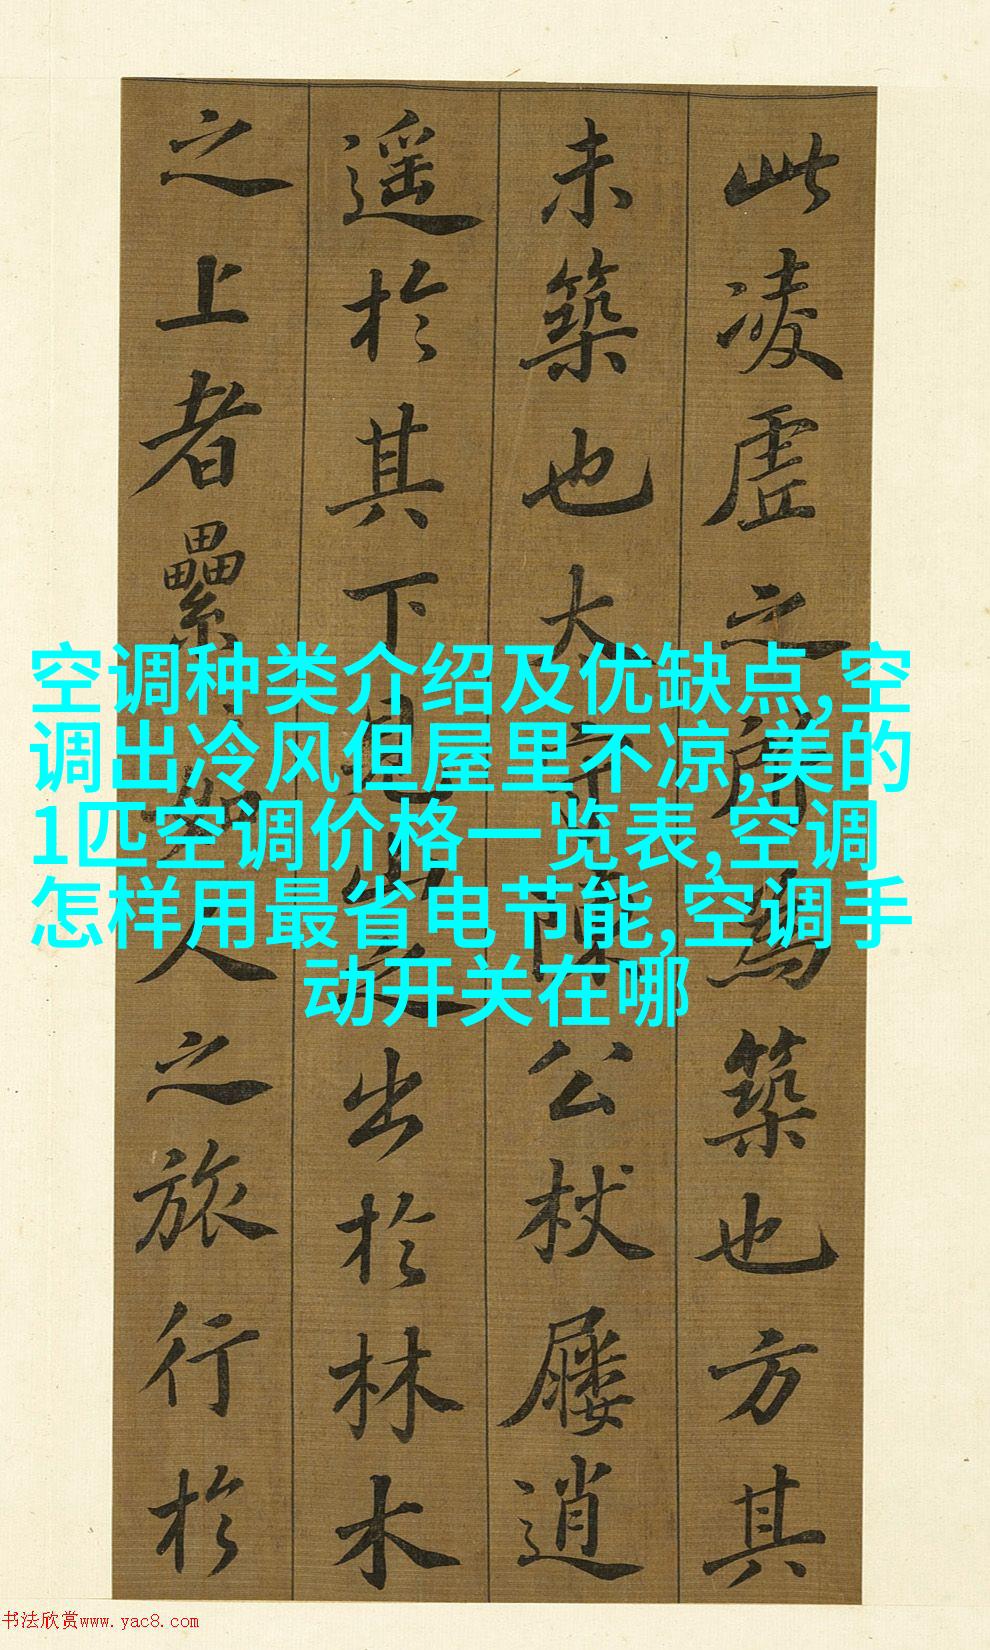 此凌虛之所為築也方其
未築也太守陳公杖屨逍
遥於其下見山之出於林木
之上者纍纍如人之旅行於
空调种类介绍及优缺点,空
调出冷风但屋里不凉,美的
1匹空调价格一览表,空调
怎样用最省电节能,空调手
动开关在哪
书法欣赏www.yac8.com